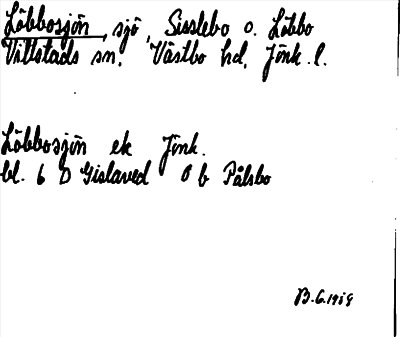 Löbbosjön, sjö, Sisslebo o. Löbbo
Villstads sn. Västbo hd, Jönk. l.
Löbbosjön ek Jönk.
bl. 6 D Gislaved 0 b Pålsbo
B.G.1969